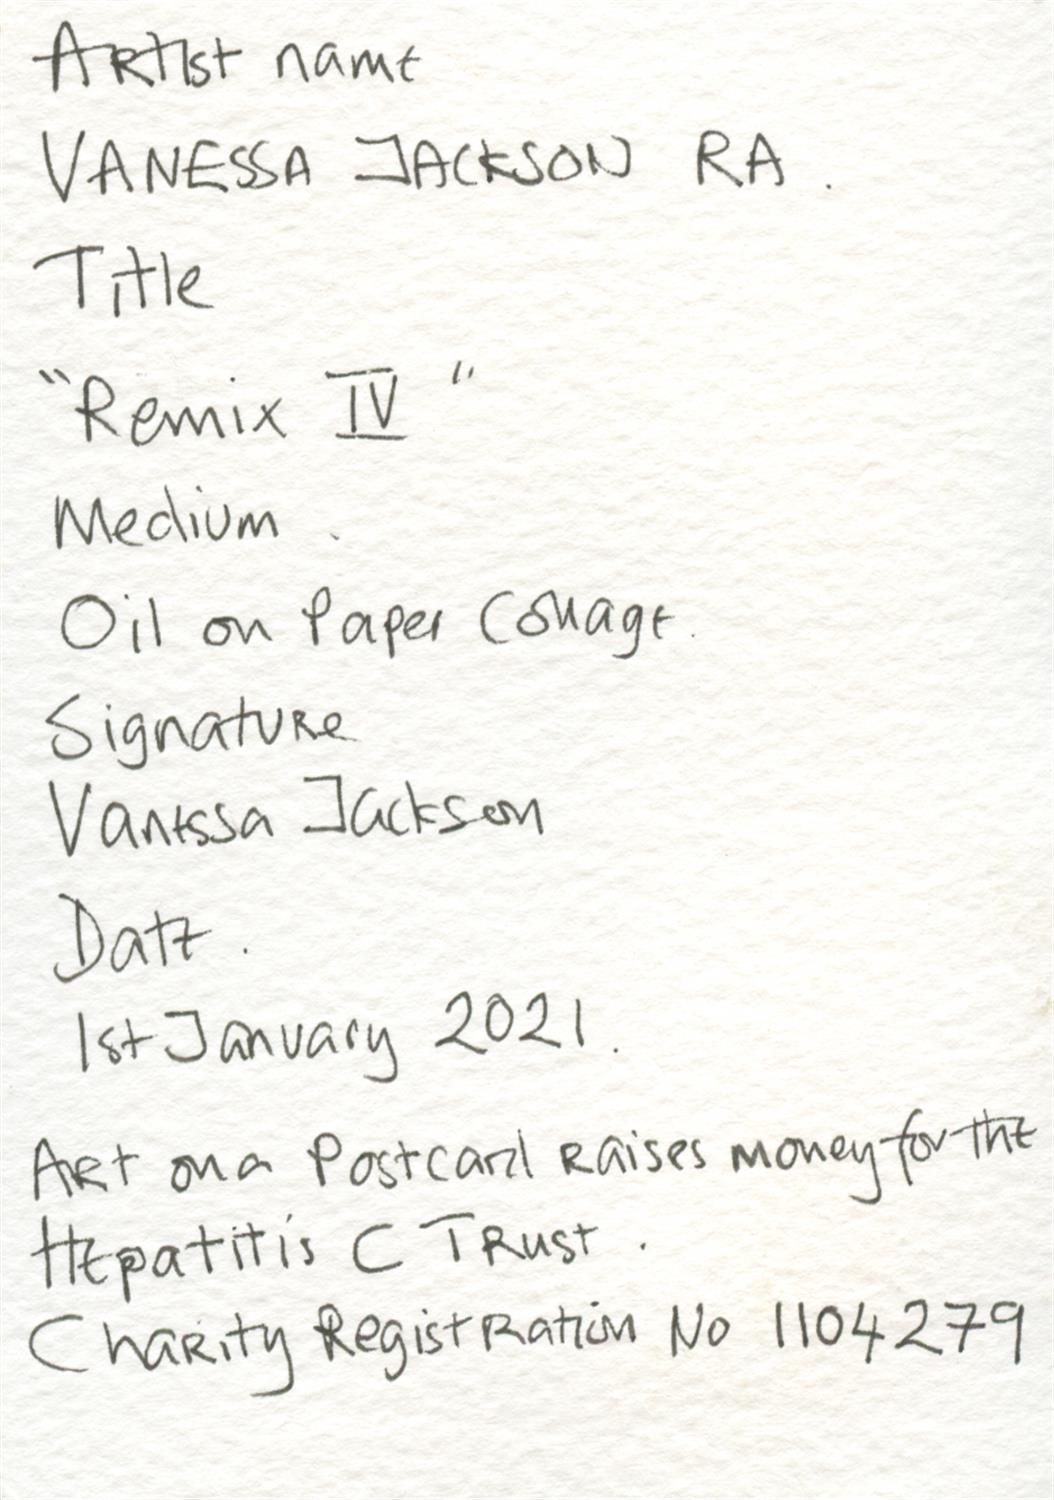 Artist name
VANESSA JACKSON RA.
Title
"Remix IV"
Medium.
Oil on Paper Collage.
Signature
Vanessa Jackson
Date.
1st January 2021.
Art on a Postcard raises money for the
Hepatitis C Trust.
Charity Registration No 1104279